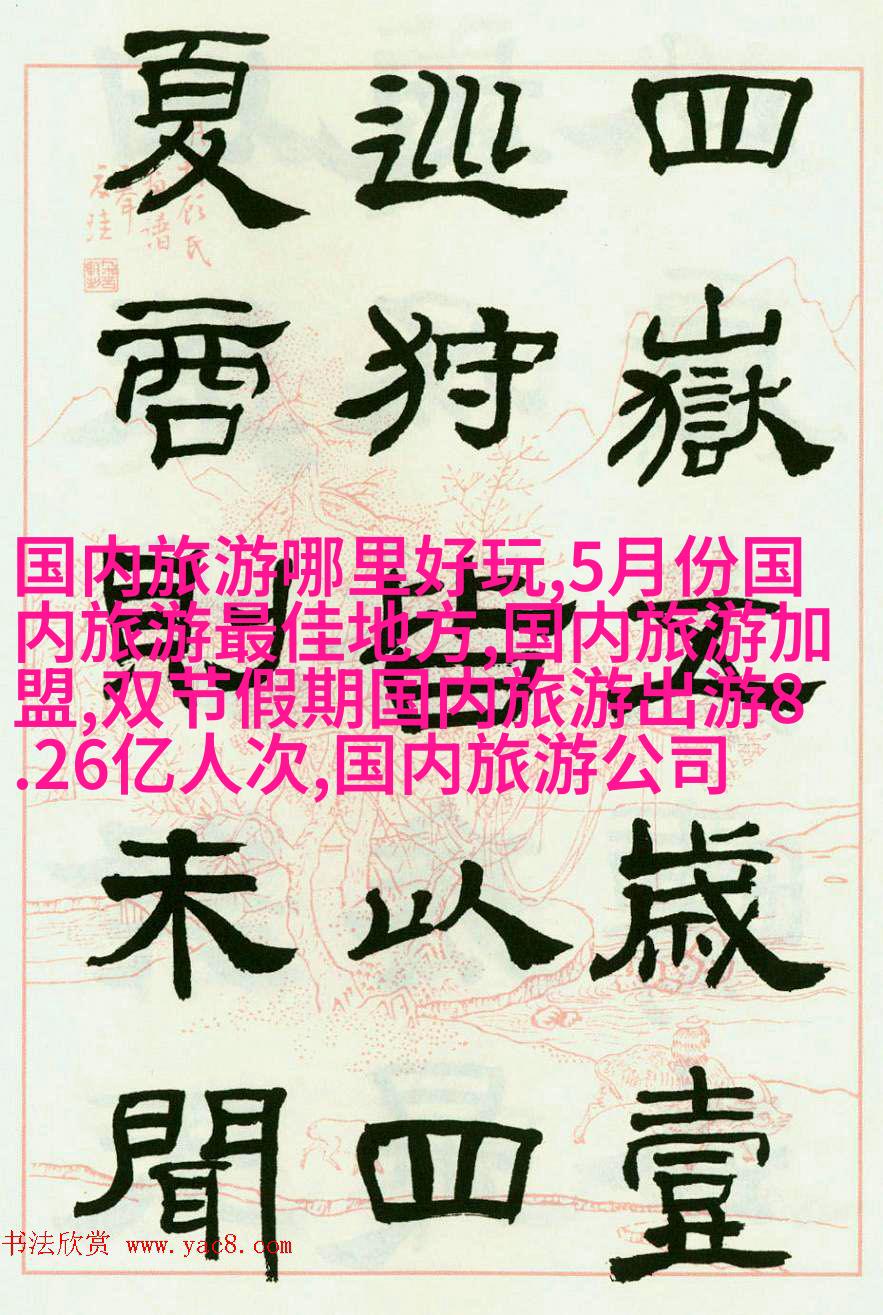 四嶽五歲壹
巡狩皆以四
夏商則未聞
国内旅游哪里好玩,5月份国
内旅游最佳地方,国内旅游加
盟,双节假期国内旅游出游8
.26亿人次,国内旅游公司
书法欣赏 www.yac8.com